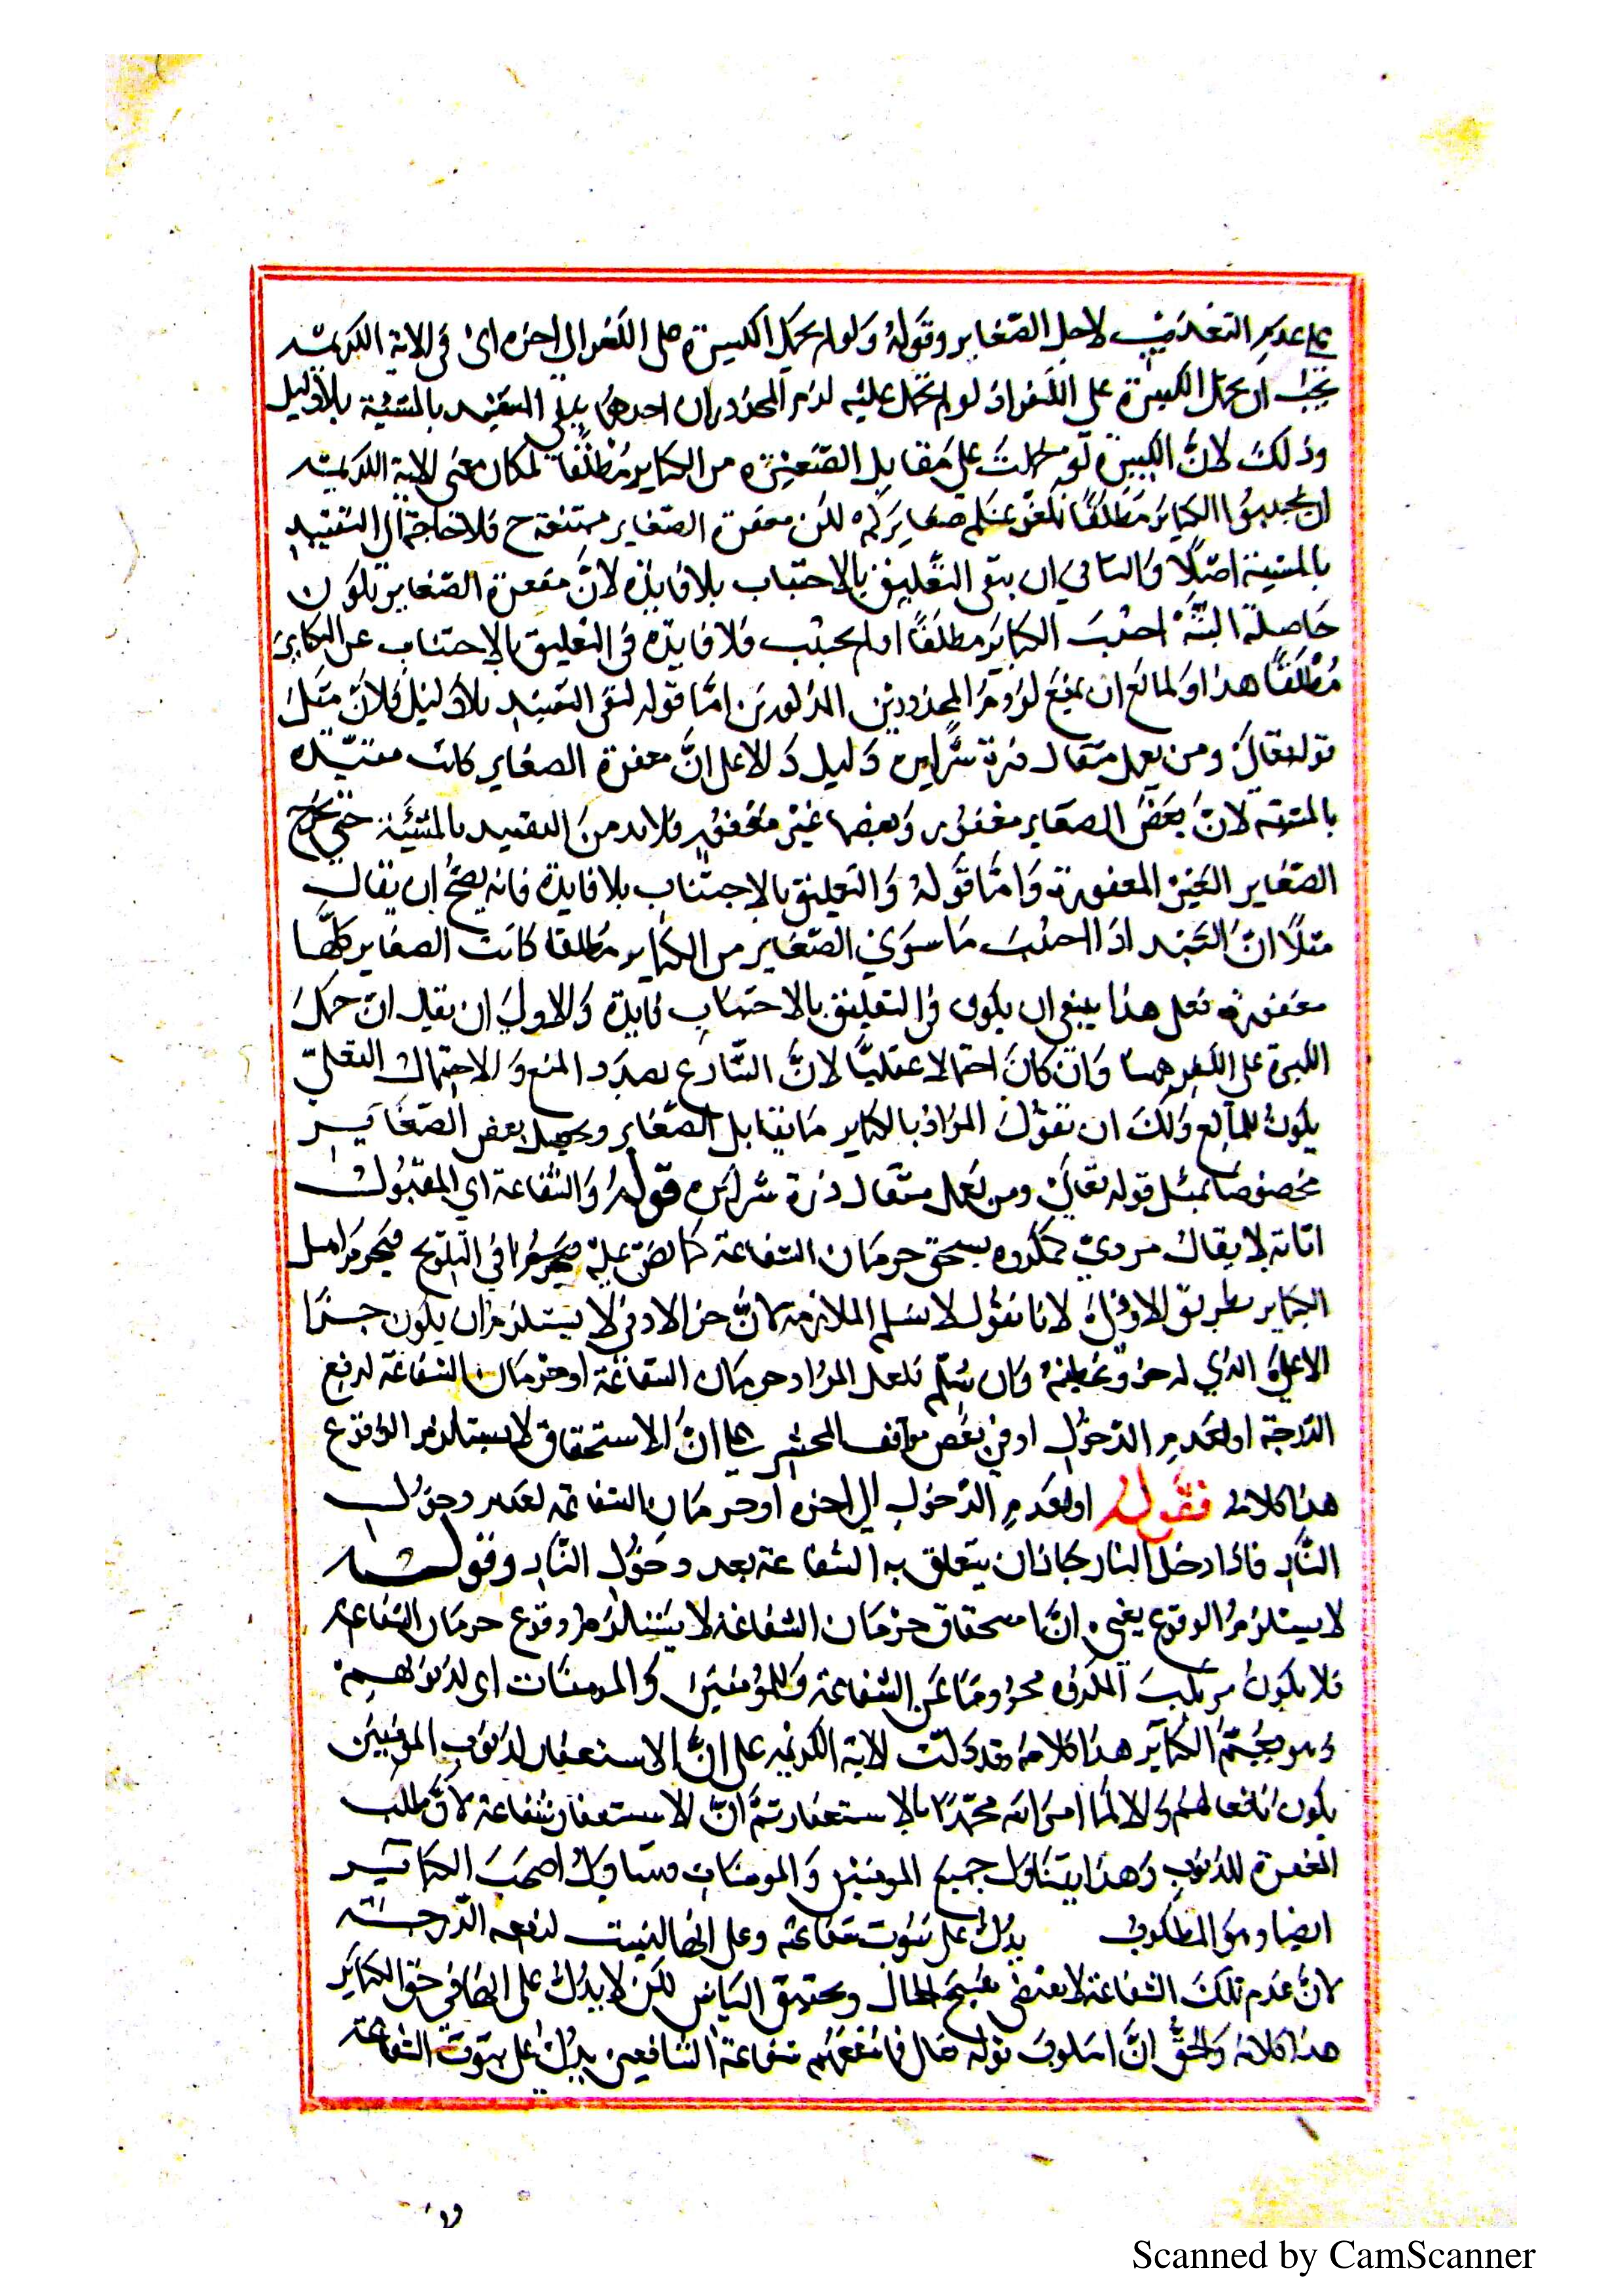 على عدم التعذيب لاجل الصغاير وقوله ولو لم يحمل الكبيرة على الكفر الى اخره اى فى الاية الكريمة
يجب ان يحمل الكبيرة على الكفر اذ لو لم تحمل عليه لزم المحذوران احدهما بقى التقييد بالمشيئة بلا دليل
وذلك لانّ الكبيرة لو حملت على مقابل الصغيرة من الكباير مطلقًا لكان معنى الاية الكريمة
ان تجتنبوا الكباير مطلقًا نكفر عنكم صغايركم لكن مغفرة الصغاير ح فلا حاجة الى التقييد
بالمشية اصلًا والثانى ان بقى التعليق بالاجتناب بلا فايدة لانّ مغفرة الصغاير تكون
حاصلة البتة اجتنب الكباير مطلقًا او لم يجتنب فلا فايدة فى التعليق بالاجتناب عن الكباير
مطلقًا هذا ولمانع ان يمنع لزوم المحذورين المذكورين امّا قوله لبقى التقييد بلا دليل فلانّ مثل
قوله تعالى ومن يعمل مثقال ذرة شرا يره دليل دال على انّ مغفرة الصغاير كانت مقيّدة
بالمشية لانّ بعض الصغاير مغفور وبعضها غير مغفور فلا بد من التقييد بالمشيئة حتى يخرج
الصغاير الغير المغفورة وامّا قوله والتعليق بالاجتناب بلا فايدة فانه يصحّ ان يقال
مثلًا انّ العبد اذا اجتنب ما سوى الصغاير من الكباير مطلقا كانت الصغاير كلّها
مغفورة فعلى هذا ينبغى ان يكون فى التعليق بالاجتناب فايدة والاولى ان يقال انّ حمل
الكبيرة على الكفر وان كان احتمالا عقليًّا لانّ الشارع بصدد المنع والاحتمال العقلىّ
يكون للمانع ولك ان تقول المراد بالكباير ما يقابل الصغاير ويجعل بعض الصغاير
مخصوصا بمثل قوله تعالى ومن يعمل مثقال ذرة شرا يره قوله والشفاعة اى المقبولة
لا يقال مرتكب المكروه يستحق حرمان الشفاعة كما نصّ عليه فى التلويح فيحرم اهل
الكباير بطريق الاولى لانا نقول لا نسلم الملازمة لانّ جزا الادنى لا يستلزم ان يكون جزا
الاعلى الذى له جزا عظيم وان سلّم فلعل المراد حرمان الشفاعة او حرمان الشفاعة لرفع
الدرجة او لعدم الدخول او فى بعض مواقف المحشر على انّ الاستحقاق لا يستلزم الوقوع
هذا كلامه فقوله او لعدم الدخول الى اخره او حرمان الشفاعة لعدم دخول
النار فاذا دخل النار جاز ان يتعلق به الشفاعة بعد دخول النار وقوله
لا يستلزم الوقوع يعنى انّ استحقاق حرمان الشفاعة لا يستلزم وقوع حرمان الشفاعة
فلا يكون مرتكب المكروه محروما عن الشفاعة وللمؤمنين والمومنات اى لذنوبهم
وهو يعمّ الكباير هذا كلامه وقد دلّت الاية الكريمة على انّ الاستغفار لذنوب المومنين
يكون نافعا لهم والا لما امر الله محمّدًا بالاستغفار ثمّ انّ الاستغفار شفاعة لانّه طلب
المغفرة للذنوب وهذا يتناول جميع المومنين والمومنات اصحاب الكباير
ايضا وهو المطلوب يدلّ على ثبوت شفاعة وعلى انها ليست لرفعه الدرجة
لانّ عدم تلك الشفاعة لا يقتضى تقبيح الحال وتحقيق الياس لكن لا يدلّ على انها فى حق الكباير
هذا كلامه والحقّ انّ اسلوب قوله تعالى فما تنفعهم شفاعة الشافعين يدلّ على ثبوت الشفاعة
Scanned by CamScanner